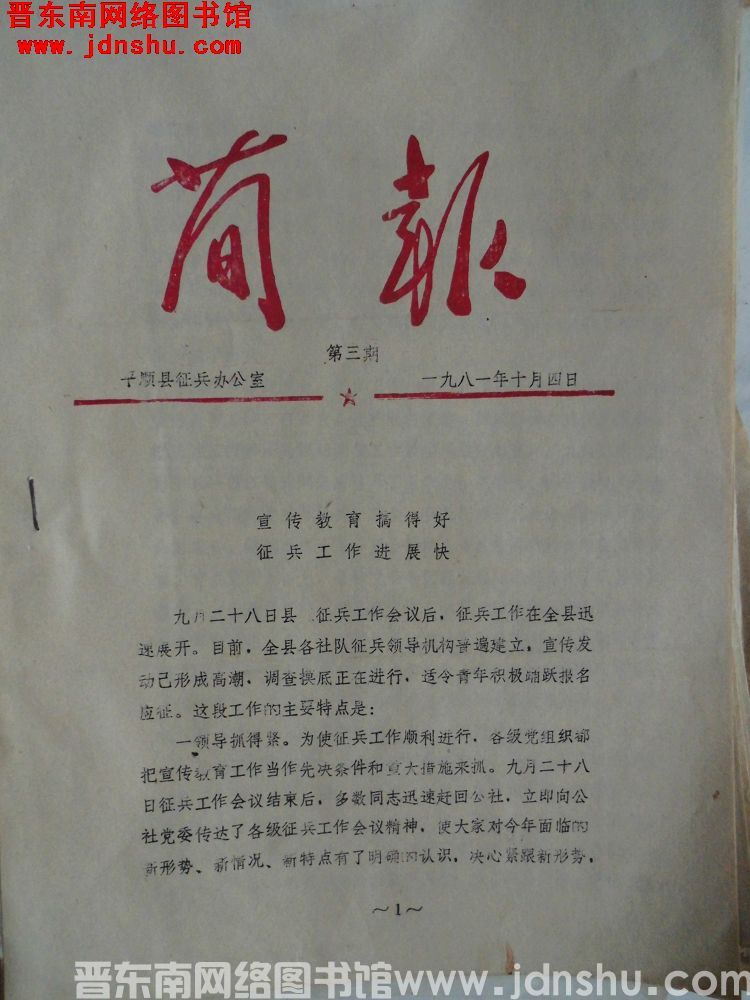 晋东南网络图书馆
www.jdnshu.com
简报
第三期
平顺县征兵办公室 一九八一年十月四日
宣传教育搞得好
征兵工作进展快
九月二十八日县 征兵工作会议后，征兵工作在全县迅
速展开。目前，全县各社队征兵领导机构普遍建立，宣传发
动已形成高潮，调查摸底正在进行，适令青年积极踊跃报名
应征。这段工作的主要特点是：
一领导抓得紧。为使征兵工作顺利进行，各级党组织都
把宣传教育工作当作先决条件和重大措施来抓。九月二十八
日征兵工作会议结束后，多数同志迅速赶回公社，立即向公
社党委传达了各级征兵工作会议精神，使大家对今年面临的
新形势、新情况、新特点有了明确的认识，决心紧跟新形势，
～1～
晋东南网络图书馆www.jdnshu.com